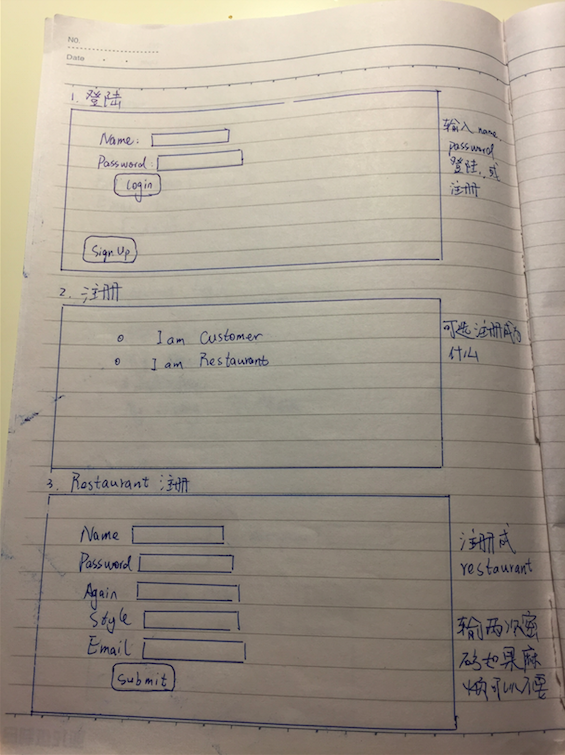 No.
Date
1. 登陆
Name:
Password:
Login
Sign Up
输入 name,
password
登陆, 或
注册
2. 注册
I am Customer
I am Restaurant
可选注册成为
什么
3. Restaurant 注册
Name
Password
Again
Style
Email
Submit
注册成
restaurant
输两次密
码如果麻
烦可以不要